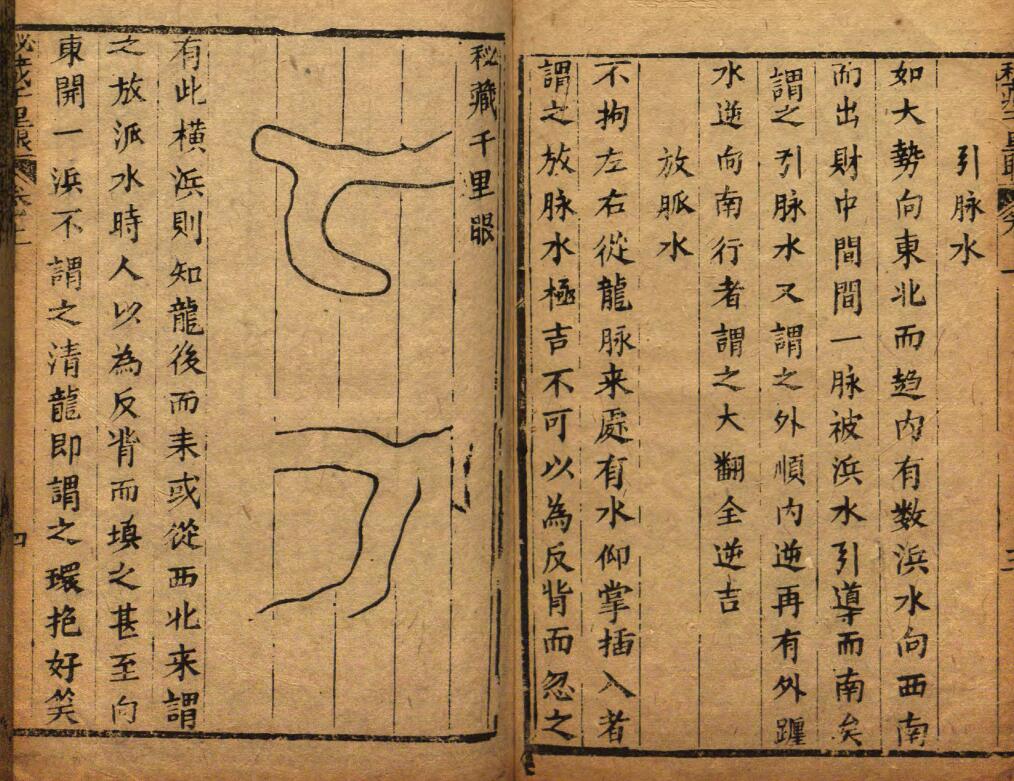 引脉水
如大勢向東北而趋内有数浜水向西南
而出財中間間一脉被浜水引導而南矣
謂之引脉水又謂之外順内逆再有外躔
水逆向南行者謂之大翻全逆吉
放脈水
不拘左右從龍脉来處有水仰掌插入者
謂之放脉水極吉不可以為反背而忽之
三
秘藏千里眼
有此横浜則知龍後而来或從西北来謂
之放派水時人以為反背而填之甚至向
東開一浜不謂之清龍即謂之環抱好笑
秘藏千里眼
四